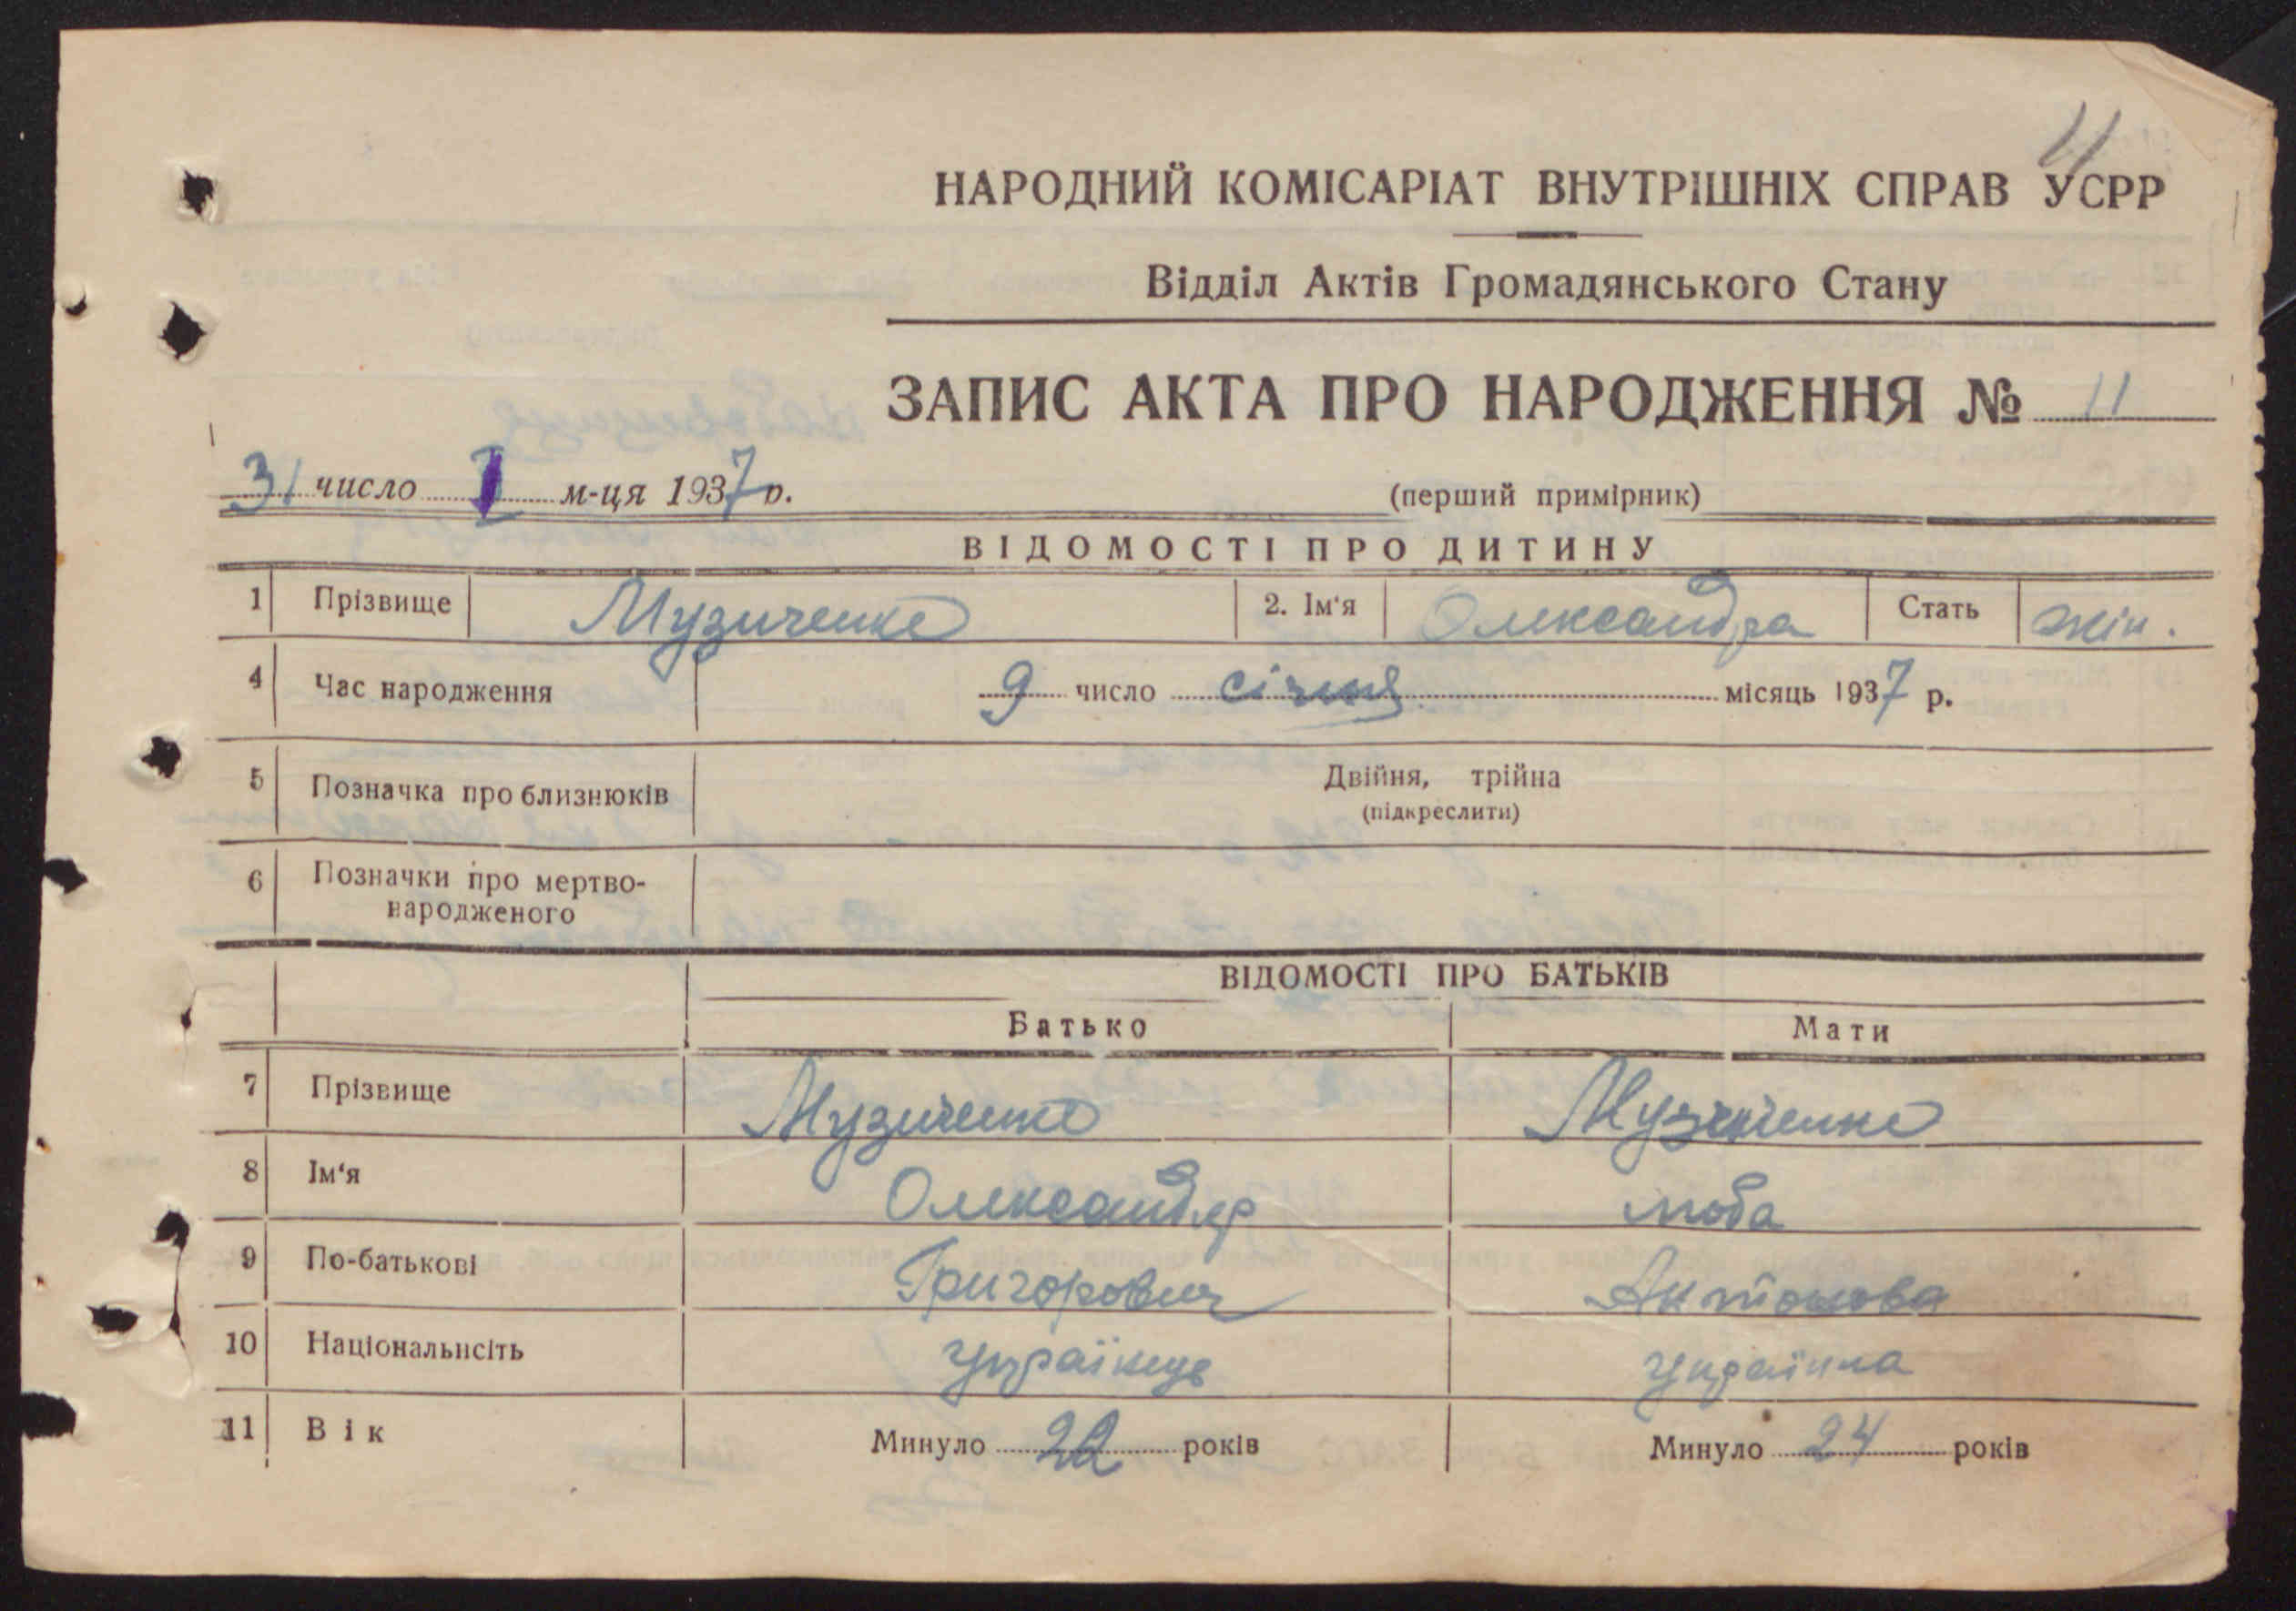 11
НАРОДНИЙ КОМІСАРІАТ ВНУТРІШНІХ СПРАВ УСРР
Відділ Актів Громадянського Стану
ЗАПИС АКТА ПРО НАРОДЖЕННЯ № 11
31 число I м-ця 1937 р.
(перший примірник)
ВІДОМОСТІ ПРО ДИТИНУ
1 Прізвище Музиченко 2. Ім'я Олександра Стать жін.
4 Час народження 9 число січня місяць 1937 р.
5 Позначка про близнюків Двійня, трійна
(підкреслити)
6 Позначки про мертво-
народженого
ВІДОМОСТІ ПРО БАТЬКІВ
Батько Мати
7 Прізвище Музиченко Музиченко
8 Ім'я Олександр Люба
9 По-батькові Григорович Антонова
10 Національнсіть українець українка
11 Вік Минуло 22 років Минуло 24 років